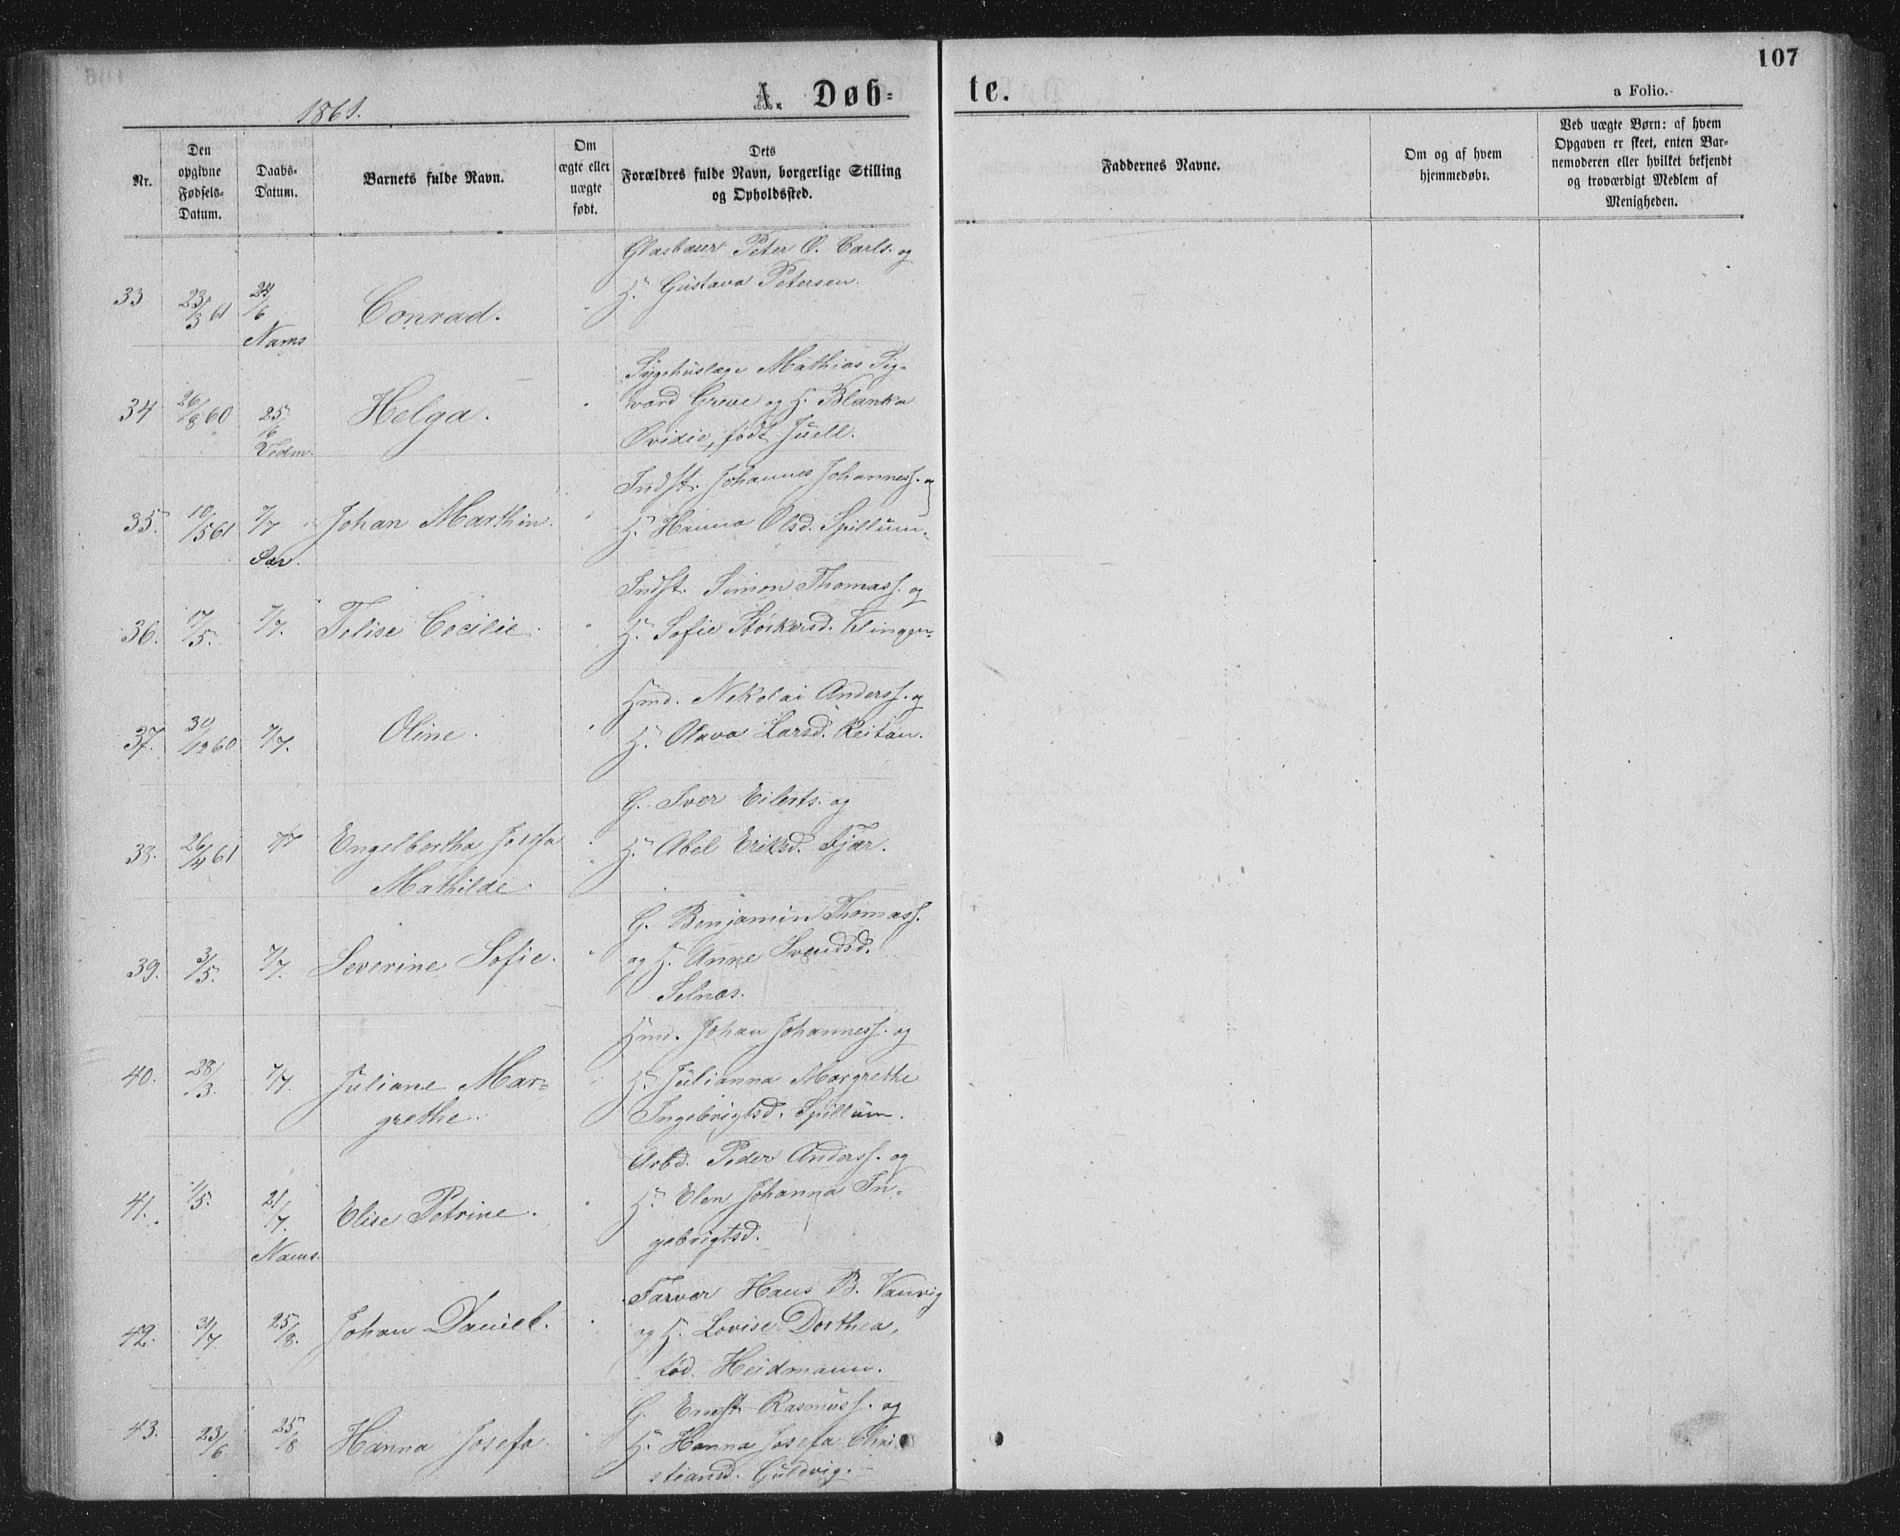 107
1861.
A. Døb=
te.
a Folio.
Nr.
Den
opgivne
Fødsels-
Datum.
Daabs-
Datum.
Barnets fulde Navn.
Om
ægte eller
uægte
født.
Dets
Forældres fulde Navn, borgerlige Stilling
og Opholdssted.
Faddernes Navne.
Om og af hvem
hjemmedøbt.
Ved uægte Børn: af hvem
Opgaven er skeet, enten Bar-
nemoderen eller hvilket bekjendt
og troværdigt Medlem af
Menigheden.
33 23/3 61 24/6 Nams Conrad.
Peter O. Carls. og
H. Gustava Petersen.
34 26/8 60 25/6 Helga.
Sygehuslæge Mathias Sig-
vard Greve og H. Blanka
Ovidie, født Juell.
35. 10/5 61 7/7 Sær. Johan Marthin.
Indst. Johannes Johanness. og
H. Hanna Olsd. Spillum.
36. 17/5. 7/7. Felise Cecilie.
Indst. Simon Thomass. og
H. Sofie Størkersd. Klingen.
37. 30/12 60 7/7. Oline.
Hmd. Nekolai Anderss. og
H. Olava Larsd. Reitan.
38. 26/4 61 7/7 Engelbertha Josefa
Mathilde.
G. Iver Eilerts. og
H. Abel Eriksd. Fjær.
39. 3/5. 7/7. Severine Sofie.
G. Benjamin Thomass.
og H. Anne Svendsd.
Selnæs.
40. 28/3. 7/7. Juliane Mar=
grethe.
Hmd. Johan Johanness. og
H. Julianna Margrethe
Ingebrigtsd. Spillum.
41. 1/5. 21/7. Nams. Elise Petrine.
Arbd. Peder Anderss. og
H. Elen Johanna In-
gebrigtsd.
42. 31/7 25/8. Johan Daniel.
Farver Hans B. Vanvig
og H. Lovise Dorthea,
fød. Heidmann.
43. 23/6 25/8 Hanna Josefa.
G. Ernst Rasmuss. og
H. Hanna Josefa Chri
stiansd. Guldvig.